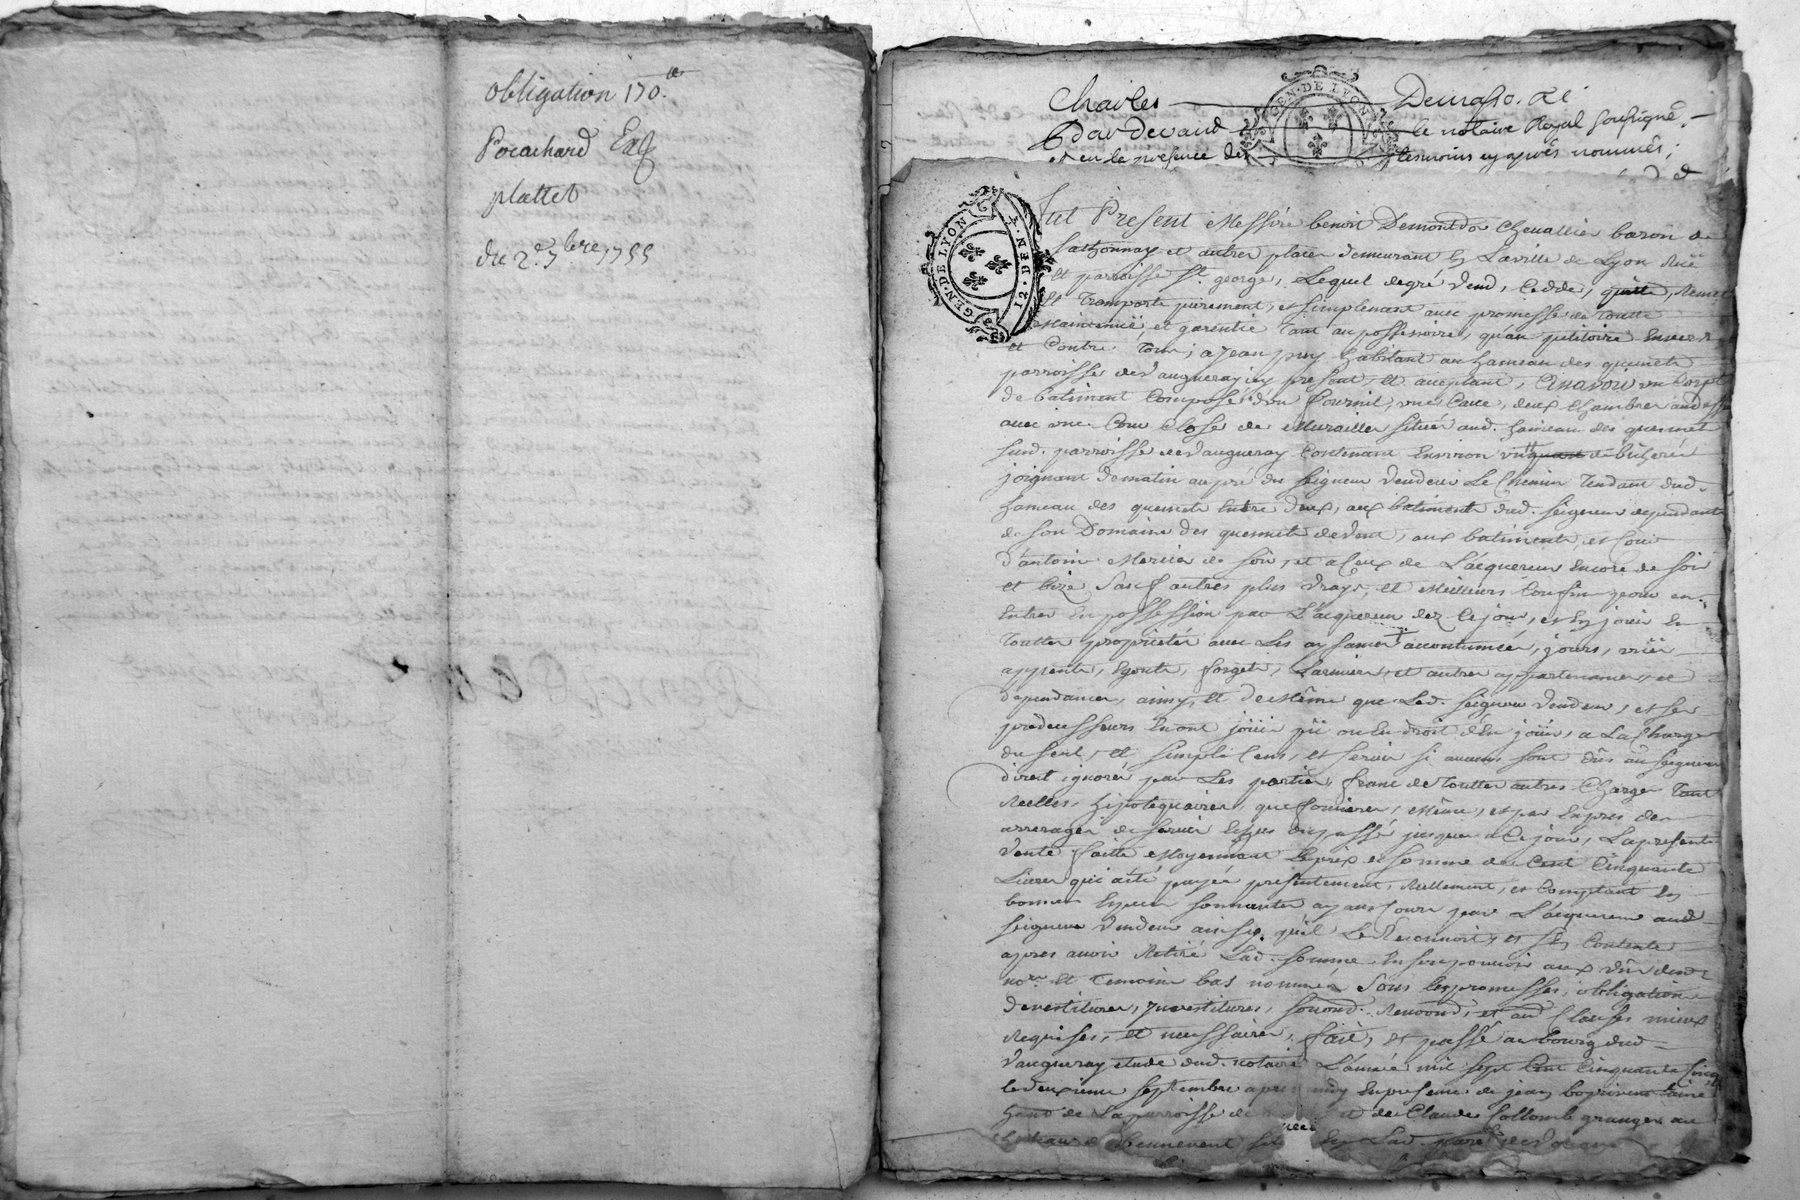 obligation 170.lt
Pocachard Exp
plattet
du 2.e 7bre 1755
Charles Demasso. Re
GEN · DE LYON
Pardevant le notaire Royal soussigné,
et en la presence des tesmoins cy après nommés;
GEN · DE LYON
12 · DEN ·
fut Present Messire benoit Demontdor Chevallier baron de
et autres places demeurant en Laville de Lyon Ruë
et parroisse St. george, Lequel degré vend, Cedde, quitte, Remet
et Transporte purement, et simplement avec promesse de Toutte
Maintenuë et garentie Tant au possessoire, qu'au petitoire Envers
et Contre Tous, a Jean puy habitant au hameau des quemets
parroisse de Vaugneray icy present, et aceptant, un Corps
de batiment Composé d'un fournil, une Cave, deux Chambres audess
avec une Cour Close de Murailles située aud. hameau des quemets
sud. parroisse de Vaugneray Contenant Environ
joignant de matin au pré du seigneur Vendeur Le Chemin Tendant dud.
hameau des quemets Entre deux, aux batiments dud. seigneur dependants
de son Domaine des quemets de vent, aux batiments, et Cour
d'antoine Mercier de soir, et a Ceux de L'acquereur Encore de soir
et bize Sauf autres plus vrays, et Meilleurs Confins pour en
Entrer En possession par L'acquereur dez Ce jour, et En jouir En
Toutte proprieté avec Les aysances accoutumées, jours, vuës
appents, Egouts, forgets, Larmiers, et autres appartenances, et
dependances, ainsy, et de Même que Led. seigneur Vendeur, et ses
predecesseurs En ont joüi pû ou En droit d'En joüir, a La Charge
du seul, et simple Cens, et servis si aucuns sont dûs au seigneur
direct ignorés par Les parties, franc de Touttes autres Charges Tant
Reelles, hipotequaires, que foncieres, Même, et par Exprès des
arrerages de servis Echus du passé jusques a Ce jour, La presente
Vente faitte Moyennant Le prix et somme de Cent Cinquante
Livres qui a été payée presentement, Reellement, et Comptant En
bonnes Especes sonnantes ayant Cours par L'acquereur aud.
seigneur Vendeur ainsy qu'il Le Reconnoit, et s'En Contente
apres avoir Retiré Lad. somme En son pouvoir aux vûs desd.
nore. et Temoins bas nommés Sous Les promesses, obligations
devestitures, Jnvestitures, soumd. Renond., et aud. Clauses mieux
Requises, et necessaires, fait, et passé au bourg dud.
Vaugneray etude dud. notaire L'année mil sept Cent Cinquante Cinq
le deuxieme septembre apres midy En presence de jean
de La parroisse de et de Claude Collomb granger au